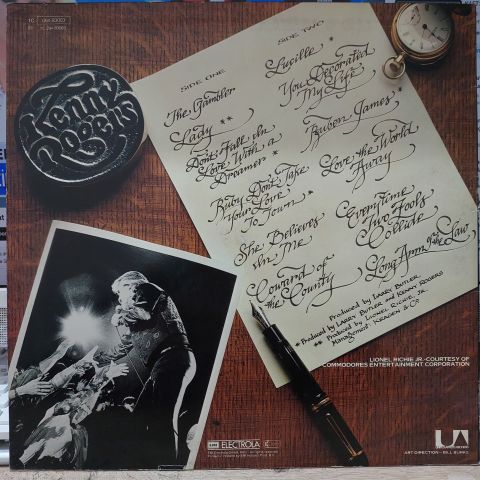 Kenny
Rogers
SIDE ONE
The Gambler
Lady **
Don't Fall In
Love With a
Dreamer *
Ruby Don't Take
Your Love
To Town *
She Believes
In Me
Coward of
the County
SIDE TWO
Lucille *
You Decorated
My Life
Reuben James *
Love the World
Away
Everytime
Two Fools
Collide
Long Arm of the Law
Produced by Larry Butler
* Produced by Larry Butler and Kenny Rogers
** Produced by Lionel Richie, Jr.
Management: Kragen & Co
LIONEL RICHIE JR.-COURTESY OF
COMMODORES ENTERTAINMENT CORPORATION
EMI ELECTROLA
UA
ART DIRECTION - BILL BURKS